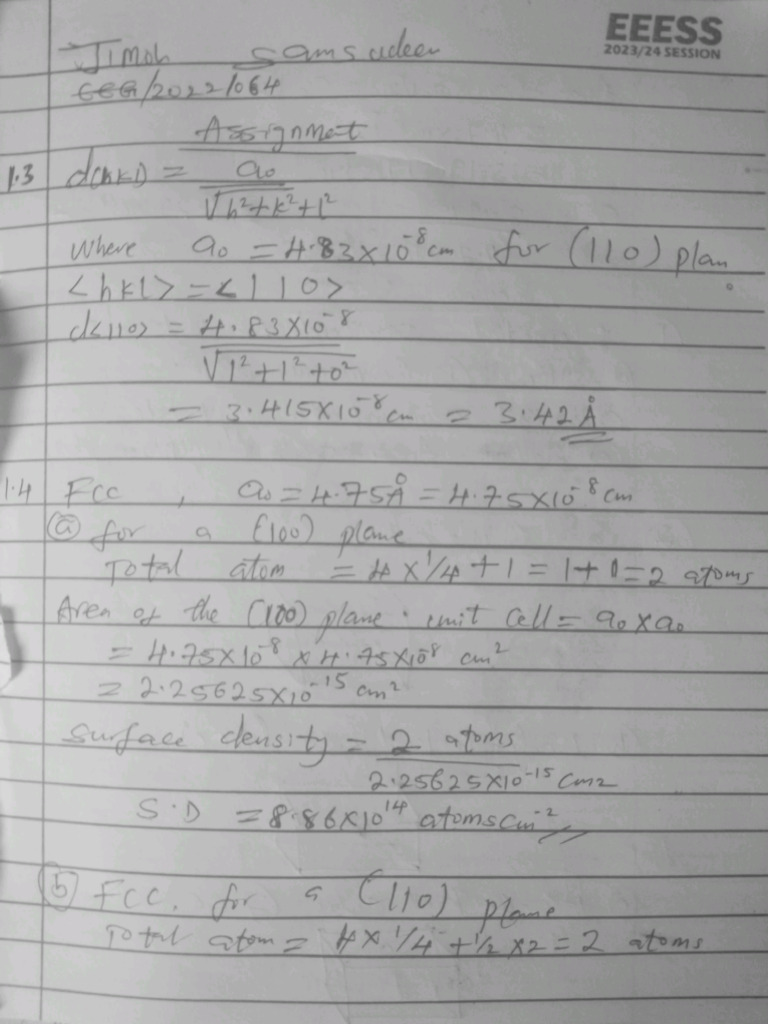 EEESS
2023/24 SESSION
Jimoh Samsudeen
EEG/2022/064
Assignment
1.3 d(hkl) = a₀
√h²+k²+l²
Where a₀ = 4.83x10⁻⁸cm for (110) plan
<hkl> = <110>
d<110> = 4.83x10⁻⁸
√1²+1²+0²
= 3.415x10⁻⁸cm = 3.42Å
1.4 Fcc, a₀ = 4.75Å = 4.75x10⁻⁸cm
(a) for a (100) plane
Total atom = 4x1/4+1 = 1+1=2 atoms
Area of the (100) plane. unit cell = a₀xa₀
= 4.75x10⁻⁸ x 4.75x10⁻⁸ cm²
= 2.25625x10⁻¹⁵ cm²
Surface density = 2 atoms
2.25625x10⁻¹⁵ cm2
S.D = 8.86x10¹⁴ atomscm⁻²
(b) FCC. for a (110) plane
Total atom = 4x1/4 + 1/2 x2 = 2 atoms